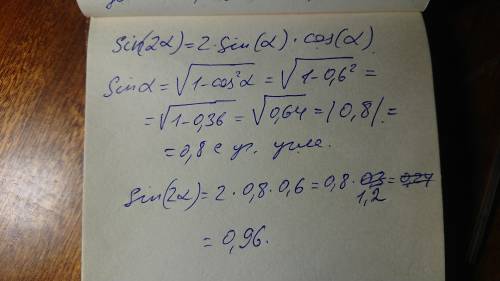 sin(2α)=2·sin(α)·cos(α)
sinα=√(1-cos²α)=√(1-0,6²)=
=√(1-0,36)=√0,64=|0,8|=
=0,8
sin(2α)=2·0,8·0,6=0,8·1,2
=0,96.